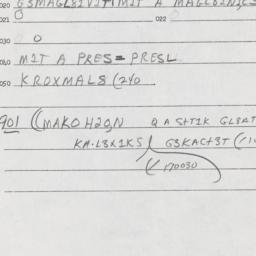 020 G3MAGL81V1T1M1T A MAGL82N2C
021 0 022
030 0
040 M1T A PRES=PRESL
050 KROXMAL8 (240
901 ((MAKOH2Q,N Q A SHT1K GL8AT
KM.L8X1KS) G3KACH3T (
(170030